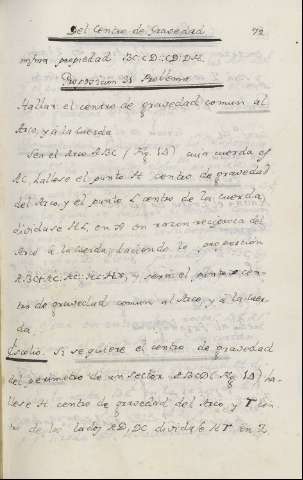 Del Centro de Gravedad 72
misma propiedad BC:CD::CD:DH.
Proposicion 31 Problema
Hallar el centro de gravedad comun al
Arco, y à la Cuerda
Sea el Arco ABC (Fig. 18) cuia cuerda es
AC, hallese el punto H centro de gravedad
del Arco, y el punto L centro de la cuerda,
dividase HL, en razon reciproca del
Arco à la cuerda, haciendo la proporcion
y serà el punto cen-
tro de gravedad comun al Arco, y à la cuer-
da.
Escolio. Si se quiere el centro de gravedad
del perimetro de un sector ABCD (Fig. 18) ha-
llese H centro de gravedad del Arco, y T cen-
tro de los lados AD, DC dividase HT en Z